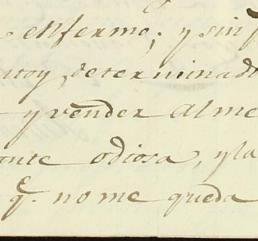 enfermo; y sin
estoy determinad
y vender al me
ante odiosa, y la
q.e no me queda